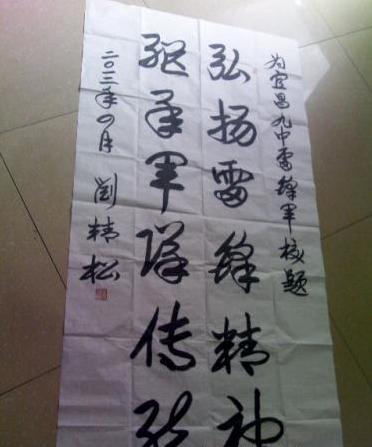 为宜昌九中雷锋军校题
弘扬雷锋精神
继承军队传统
二〇一二年四月 刘精松